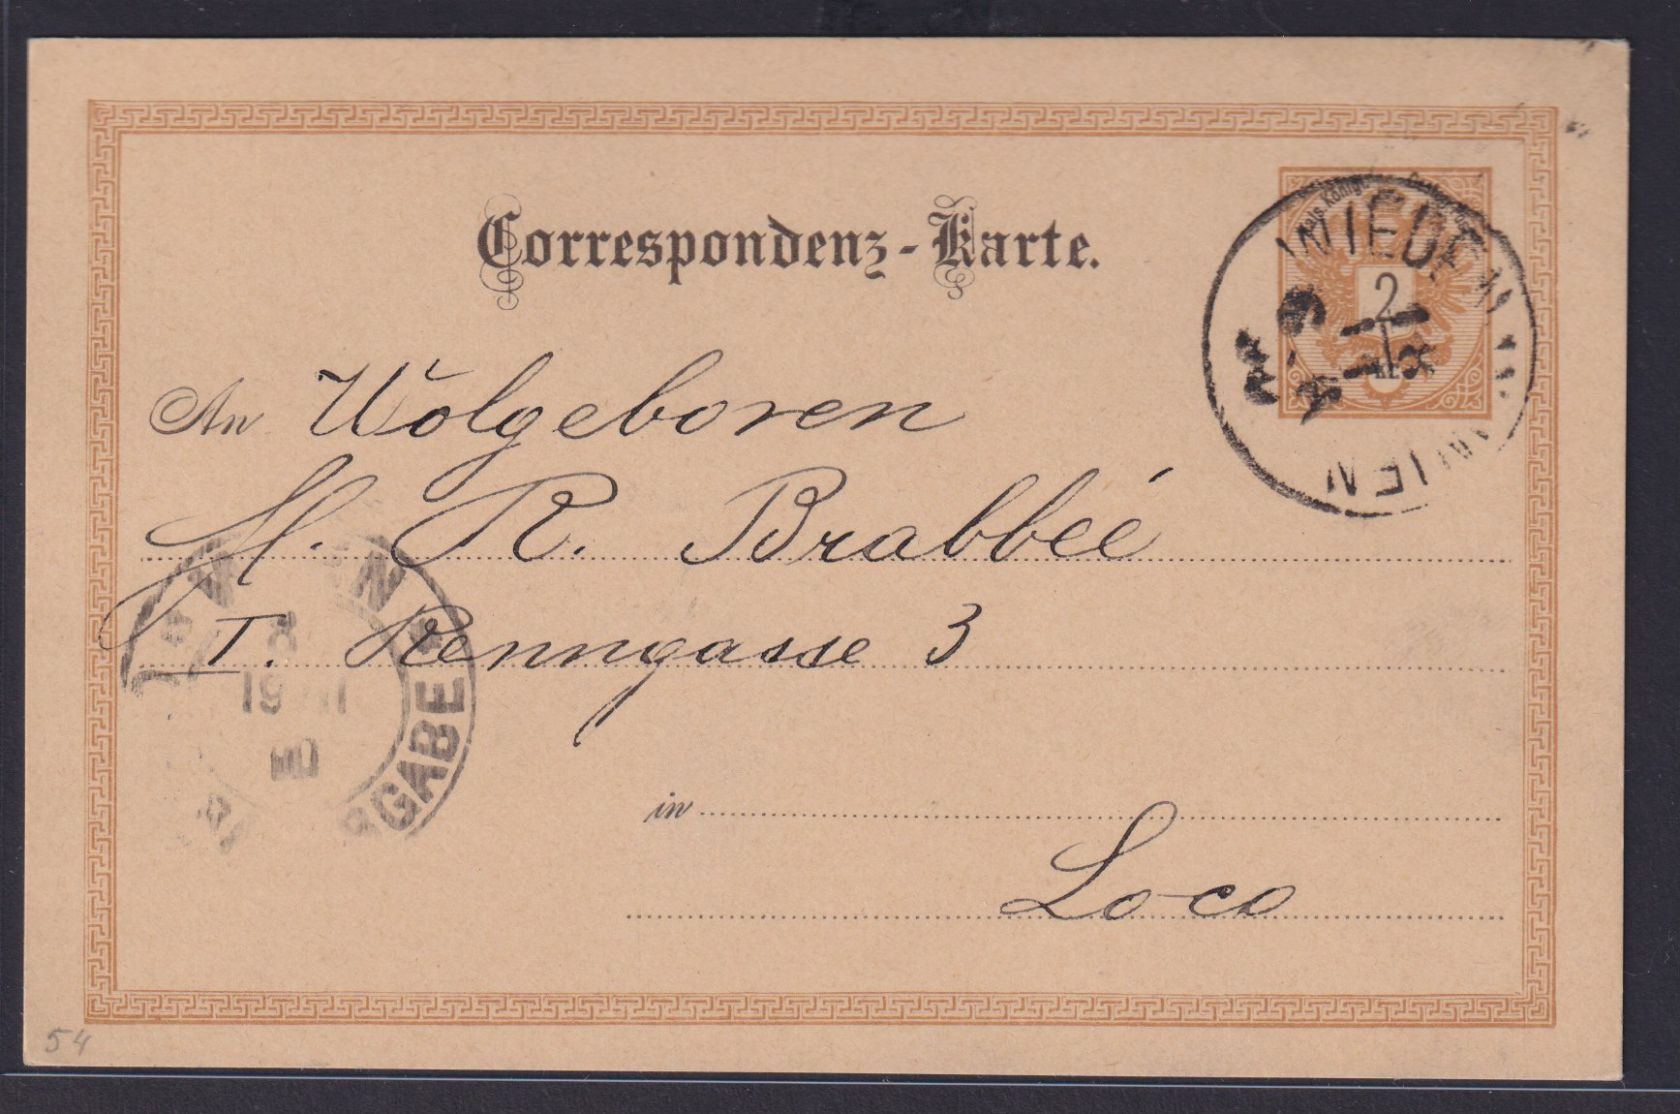 Correspondenz-Karte.
WIEDEN
WIEN
2
An Wolgeboren
H. R. Brabbée
I. Renngasse 3
in
Loco
W EN
8
19 III
90
RGABE
54